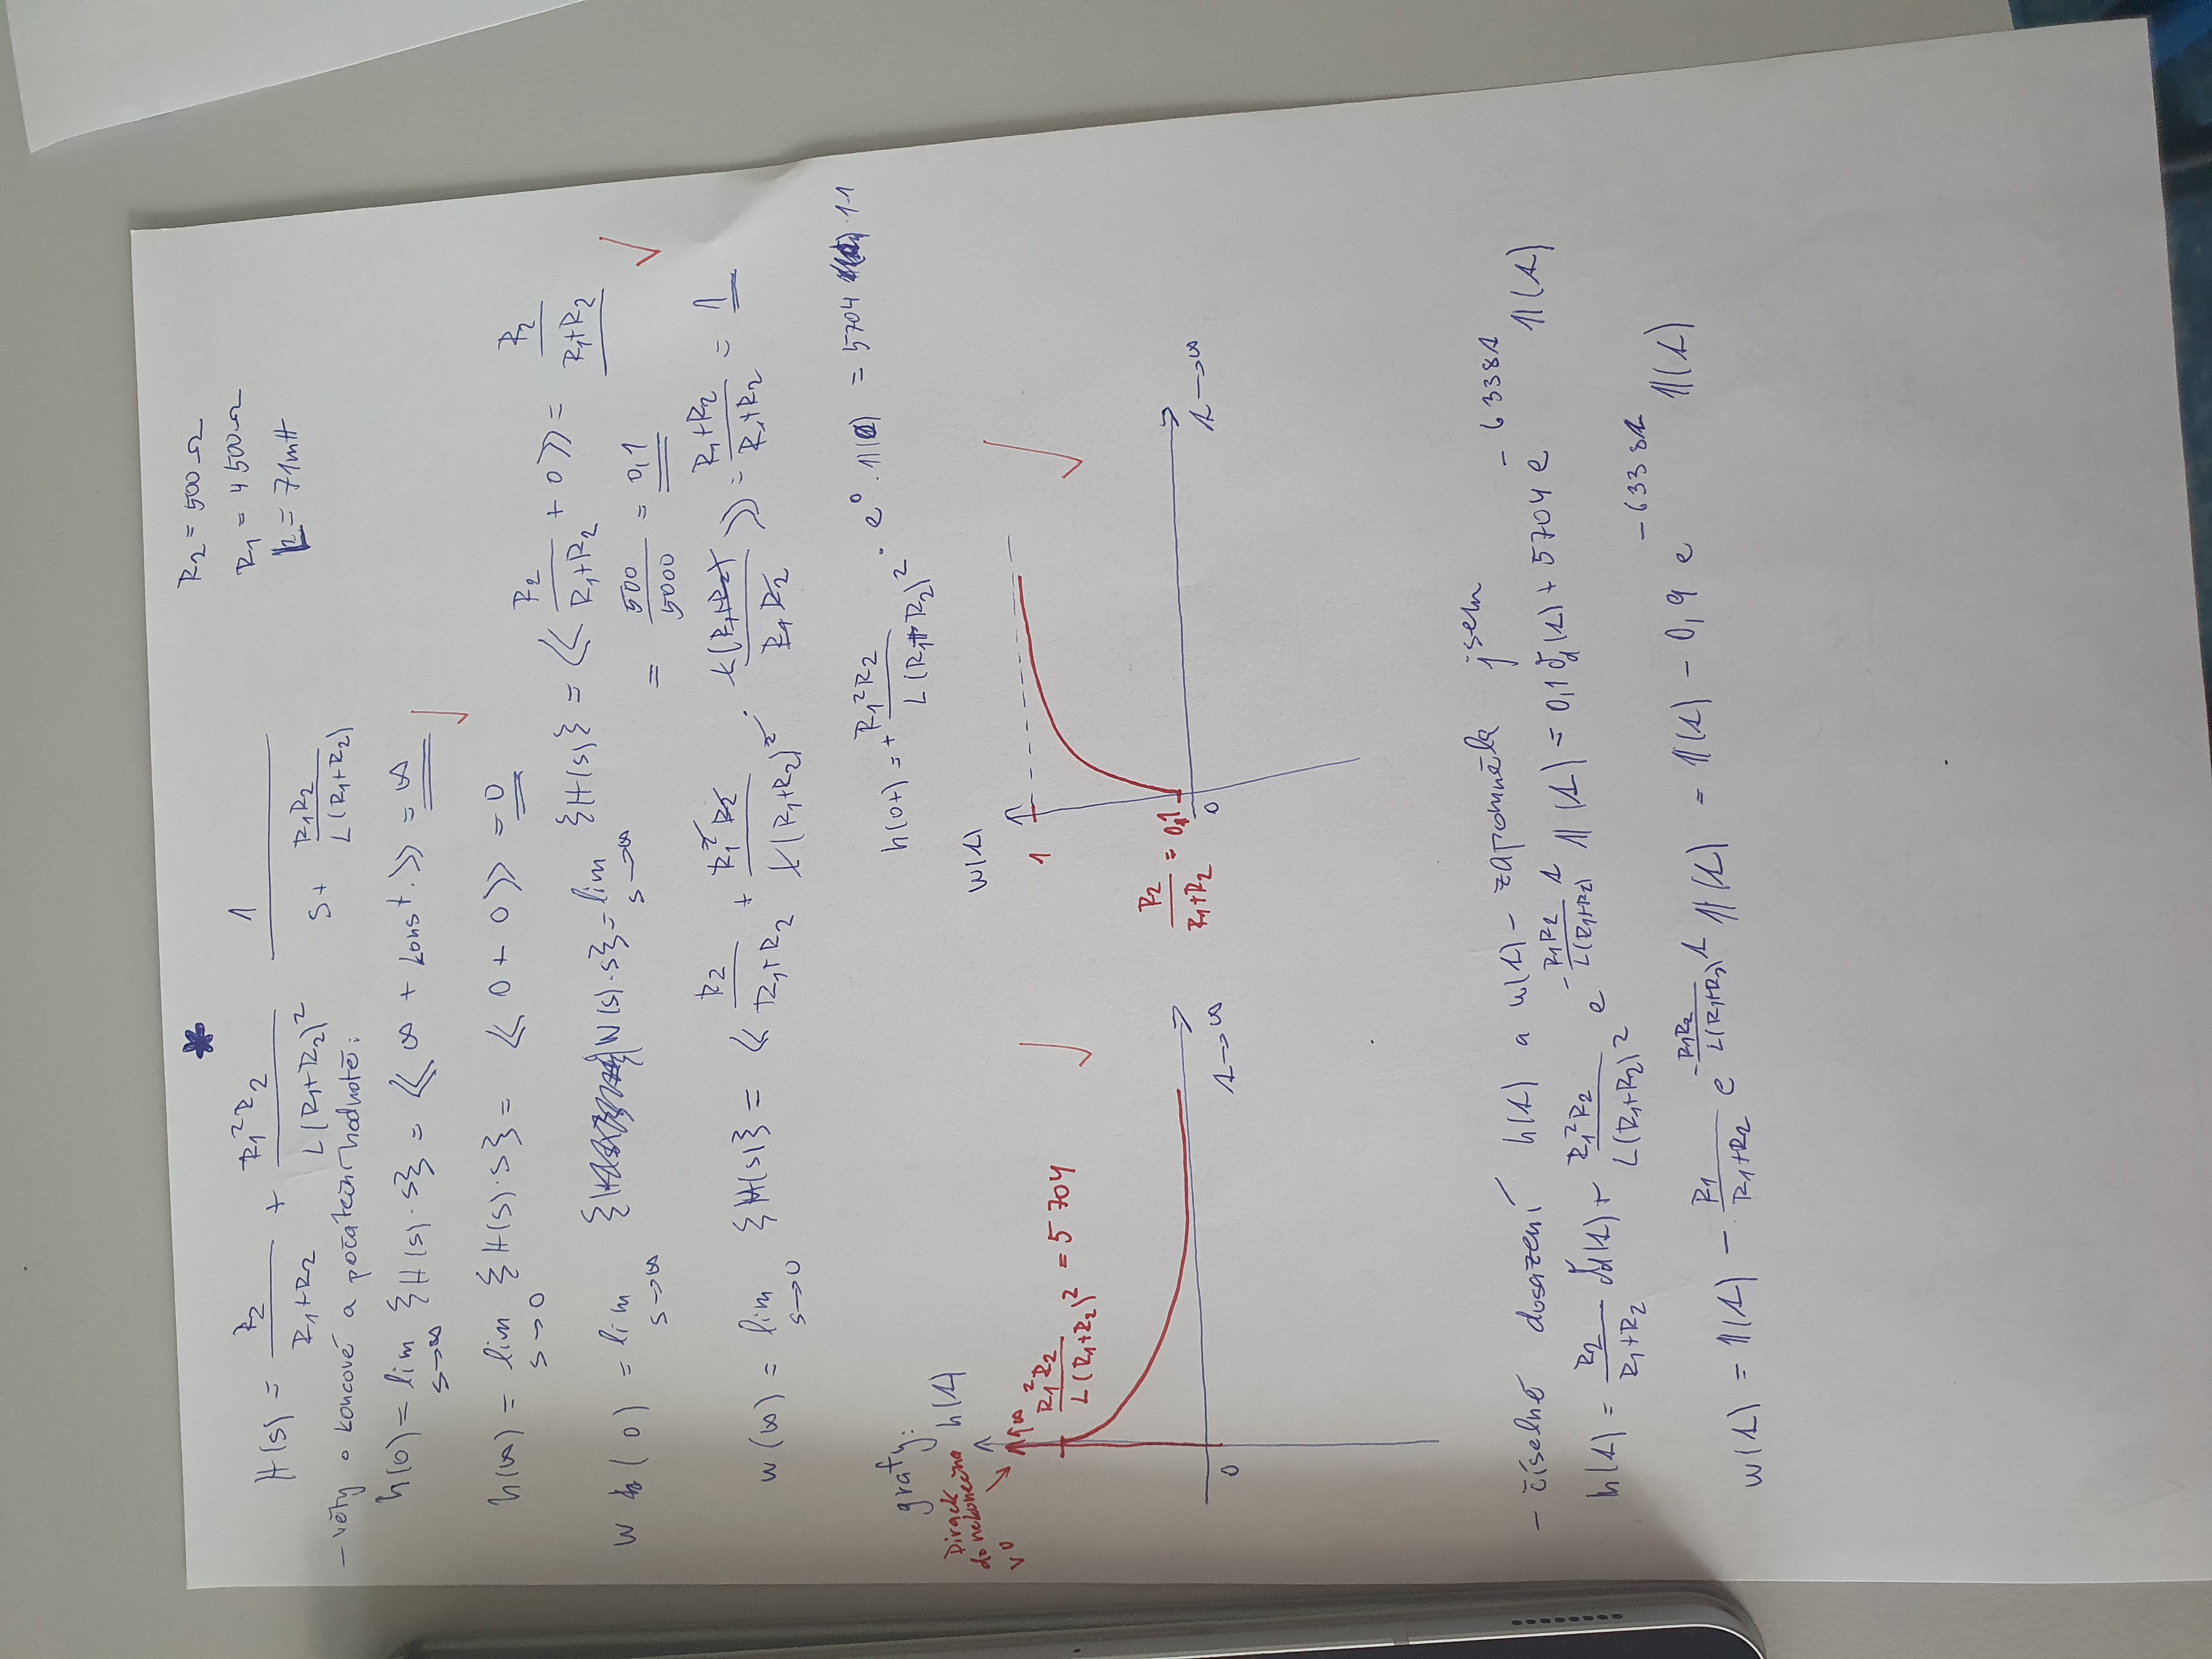 R₂ = 500 Ω
R₁ = 4 500 Ω
L = 71mH
H(s) = R₂/(R₁+R₂) + R₁²R₂/(L(R₁+R₂)²) 1/(s + R₁R₂/(L(R₁+R₂)))
- věty o koncové a počáteční hodnotě:
h(0) = lim s→∞ {H(s)·s} = ≪ ∞ + konst. ≫ = ∞
h(∞) = lim s→0 {H(s)·s} = ≪ 0 + 0 ≫ = 0
w(0) = lim s→∞ {W(s)·s} = lim s→∞ {H(s)} = ≪ R₂/(R₁+R₂) + 0 ≫ = R₂/(R₁+R₂)
= 500/5000 = 0,1
w(∞) = lim s→0 {H(s)} = ≪ R₂/(R₁+R₂) + R₁²R₂/(L(R₁+R₂)²) · L(R₁+R₂)/(R₁R₂) ≫ = (R₁+R₂)/(R₁+R₂) = 1
h(0+) = + R₁²R₂/(L(R₁+R₂)²) · e⁰ · 1l(0) = 5704 · 1·1
grafy:
Dirack do nekonečna v 0
h(t)
∞
R₁²R₂/(L(R₁+R₂)²) = 5 704
0
t→∞
w(t)
1
R₂/(R₁+R₂) = 0,1
0
t→∞
- číselné dosazení h(t) a w(t) - zapomněla jsem
h(t) = R₂/(R₁+R₂) δd(t) + R₁²R₂/(L(R₁+R₂)²) e^(-R₁R₂/(L(R₁+R₂)) t) 1l(t) = 0,1 δd(t) + 5704 e^(-6338t) 1l(t)
w(t) = 1l(t) - R₁/(R₁+R₂) e^(-R₁R₂/(L(R₁+R₂)) t) 1l(t) = 1l(t) - 0,9 e^(-6338t) 1l(t)